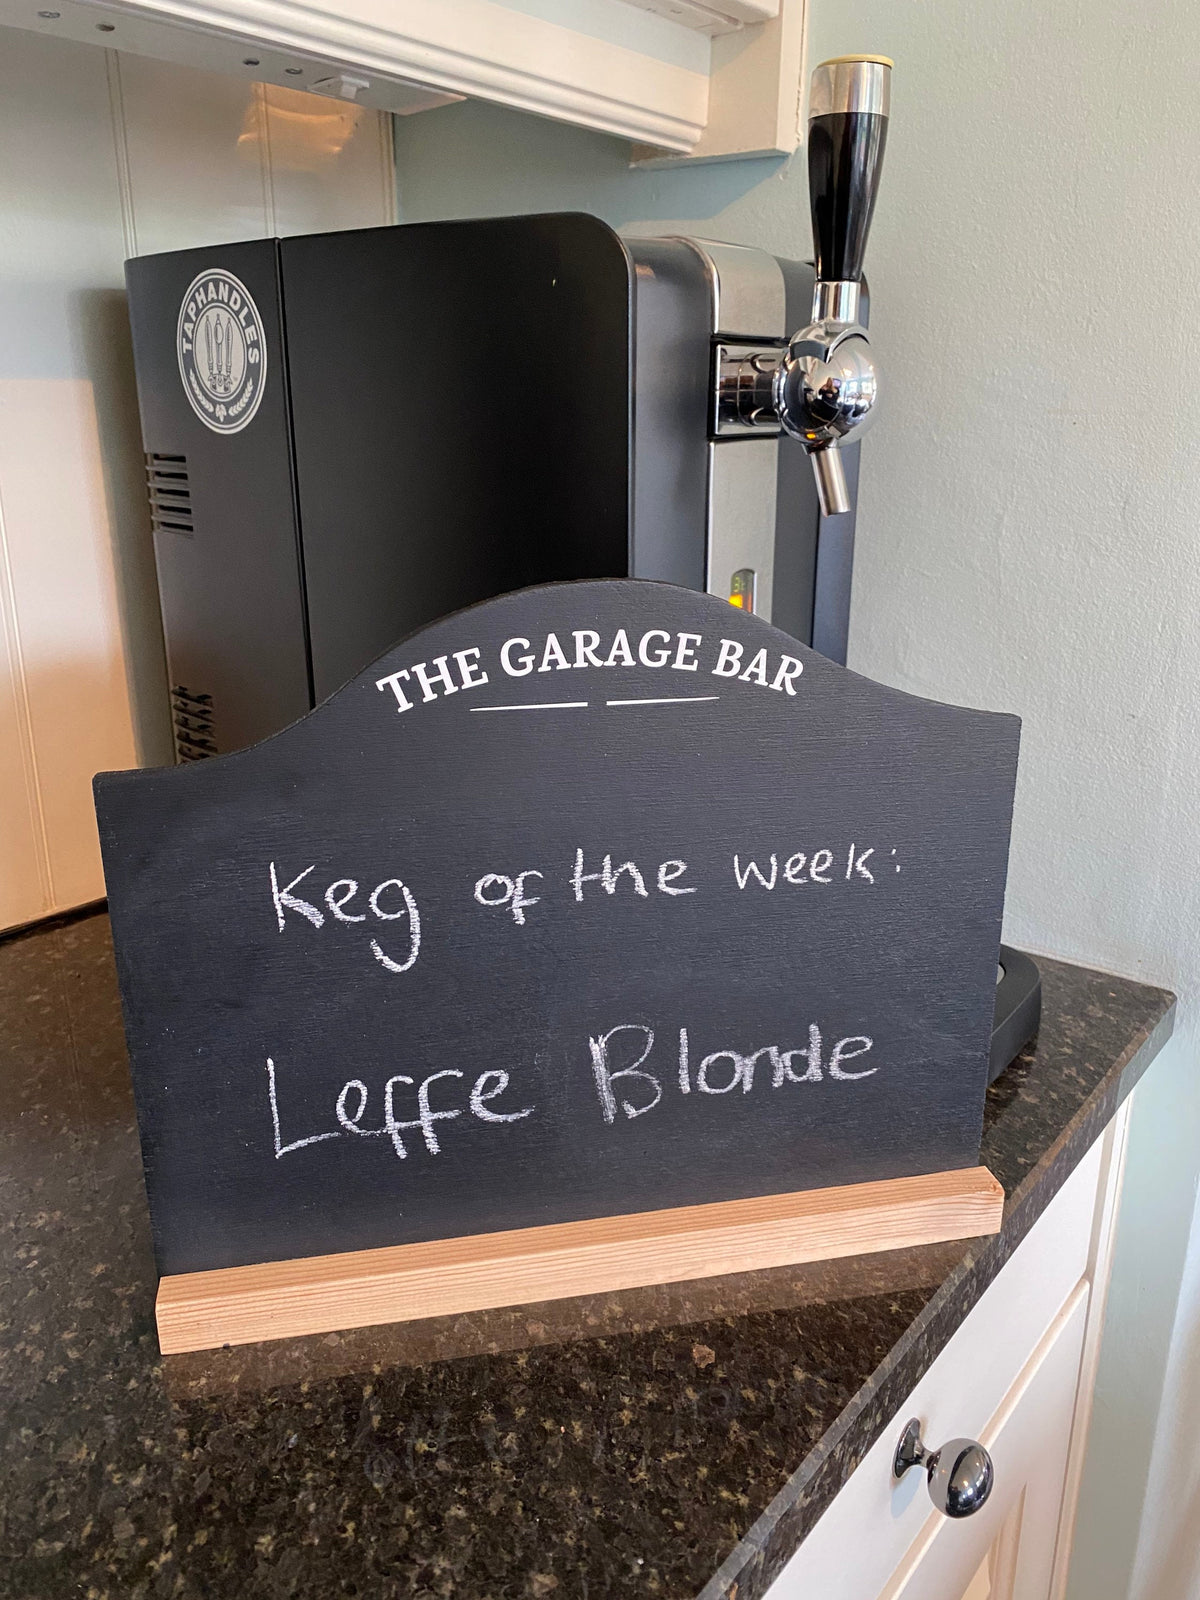 TAPHANDLES
THE GARAGE BAR
Keg of the week:
Leffe Blonde